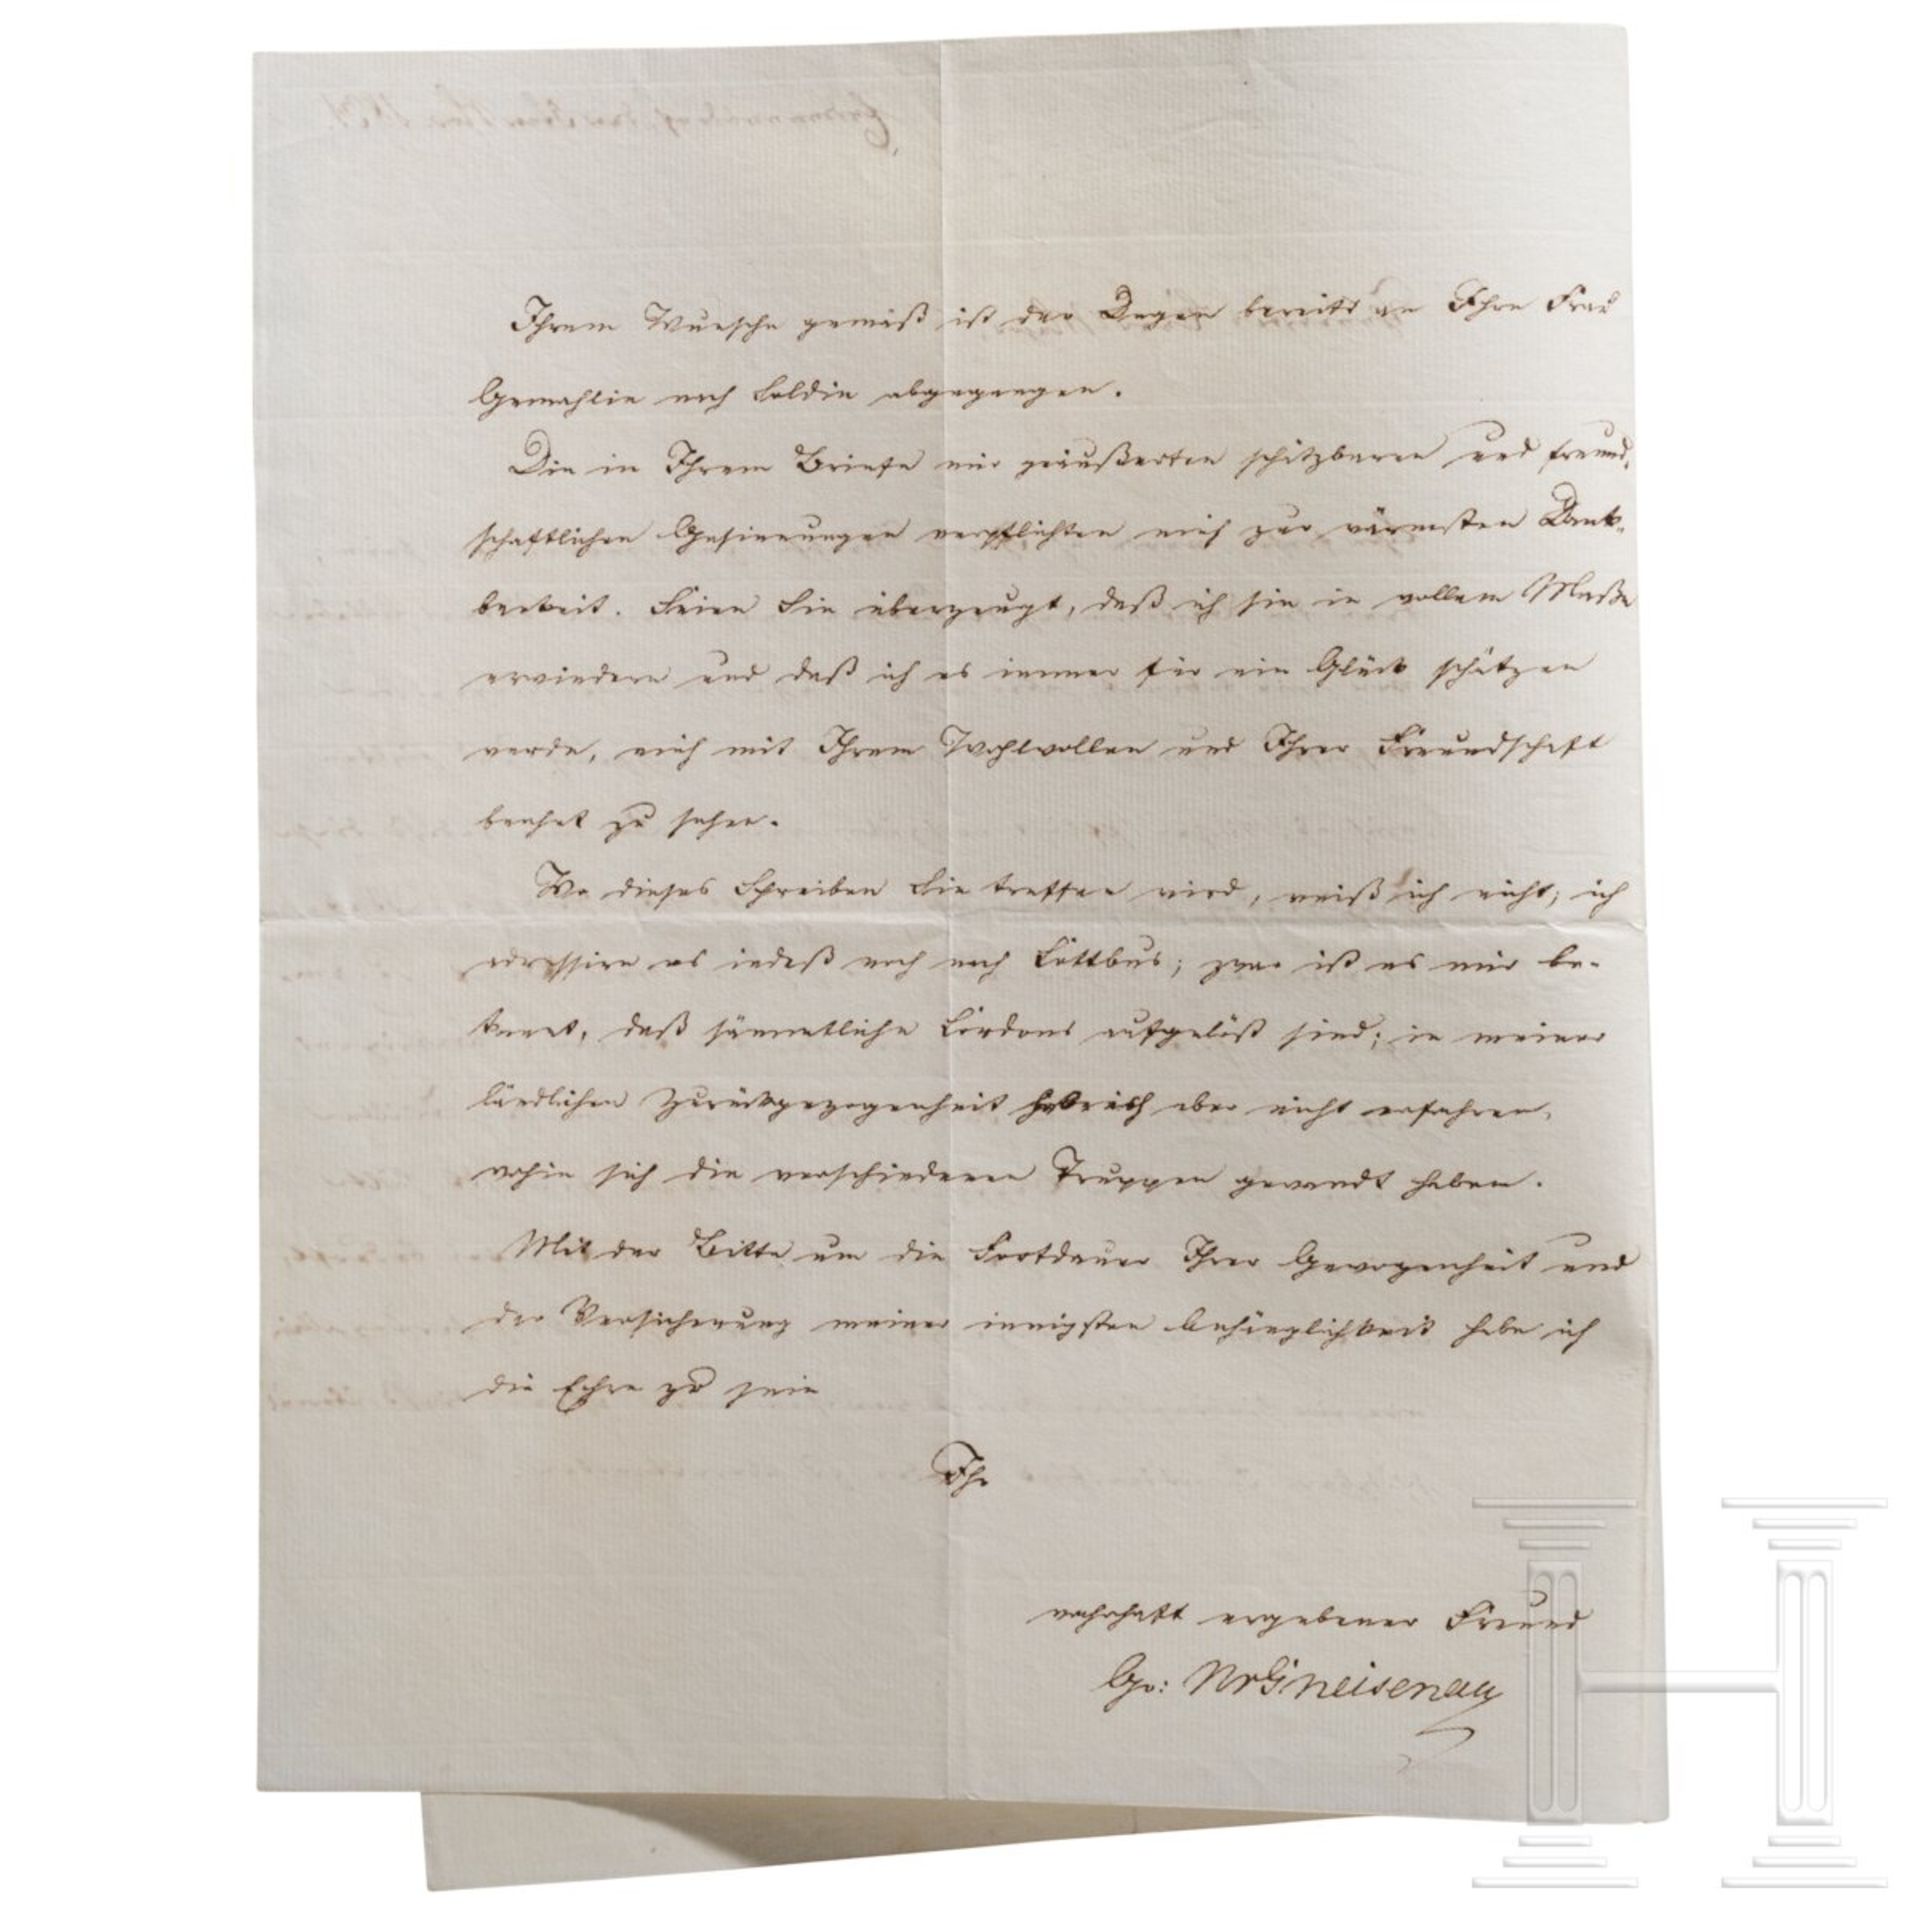 Ihrem Wunsche gemäß ist der Degen bereits an Ihre Frau
Gemahlin nach Soldin abgegangen.
Die in Ihrem Briefe mir geäußerten schätzbaren und freund-
schaftlichen Gesinnungen verpflichten mich zur wärmsten Dank-
barkeit. Seien Sie überzeugt, daß ich sie in vollem Maße
erwiedere und daß ich es immer für ein Glück schätzen
werde, mich mit Ihrem Wohlwollen und Ihrer Freundschaft
beehrt zu sehen.
Wo dieses Schreiben Sie treffen wird, weiß ich nicht; ich
adressire es indeß noch nach Cottbus; zwar ist es mir be-
kannt, daß sämmtliche Cordons aufgelößt sind; in meiner
ländlichen Zurückgezogenheit habe ich aber nicht erfahren,
wohin sich die verschiedenen Truppen gewandt haben.
Mit der Bitte um die Fortdauer Ihrer Gewogenheit und
der Versicherung meiner innigsten Anhänglichkeit habe ich
die Ehre zu sein
Ihr
wahrhaft ergebener Freund
Gr: N v Gneisenau